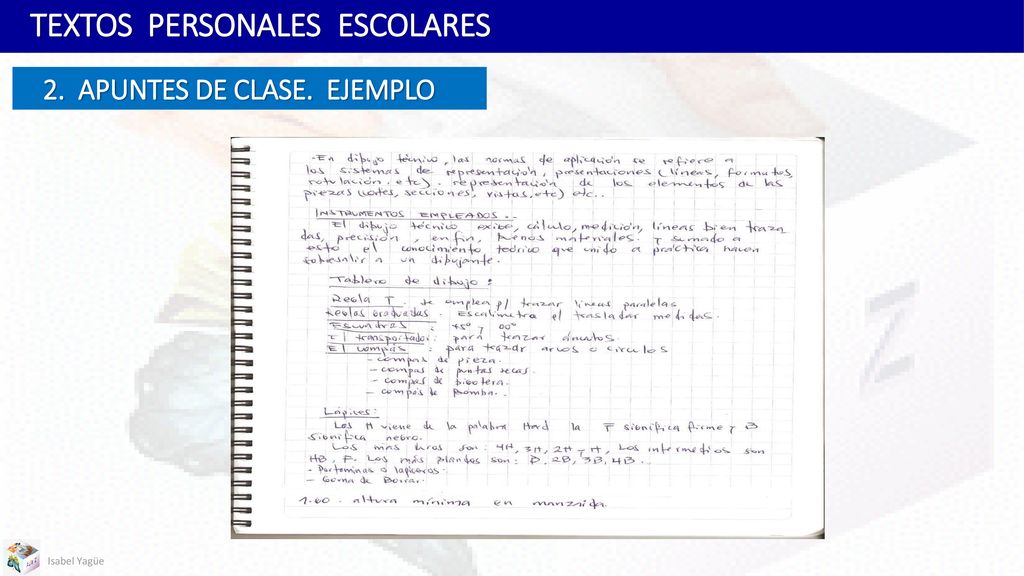 TEXTOS PERSONALES ESCOLARES
2. APUNTES DE CLASE. EJEMPLO
-En dibujo técnico, las normas de aplicación se refiere a
los sistemas de representación, presentaciones (líneas, formatos,
rotulación, etc). representación de los elementos de las
piezas (cortes, secciones, vistas, etc) etc..
INSTRUMENTOS EMPLEADOS..
El dibujo técnico exige, cálculo, medición, líneas bien traza
das, precisión, en fin, buenos materiales. Y sumado a
esto el conocimiento teórico que unido a práctica hacen
sobresalir a un dibujante.
Tablero de dibujo:
Regla T. se emplea p/ trazar líneas paralelas
Reglas Graduadas. Escalímetro p/ trasladar medidas.
Escuadras : 45° y
El transportador: para trazar ángulos.
El compás : para trazar arcos o círculos
-compas de pieza.
-compas de puntas secas.
-compas de bigotera.
-compás de Bomba..
Lápices:
Las H viene de la palabra Hard la F significa firme y B
significa negro.
Los más duros son: 4H, 3H, 2H y H, Los intermedios son
HB, F. Los más blandos son: B, 2B, 3B, 4B..
- Portaminas o lapiceros.
- Goma de Borrar.
1.60. altura mínima en
Isabel Yagüe